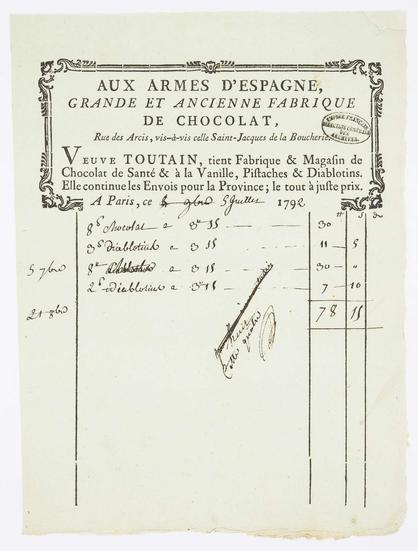 AUX ARMES D'ESPAGNE,
GRANDE ET ANCIENNE FABRIQUE
DE CHOCOLAT,
Rue des Arcis, vis-à-vis celle Saint-Jacques de la Boucherie,
EMPIRE FRANÇAIS
ARCHIVES
VEUVE TOUTAIN, tient Fabrique & Magasin de
Chocolat de Santé & à la Vanille, Pistaches & Diablotins.
Elle continue les Envois pour la Province; le tout à juste prix.
A Paris, ce 5 juillet 1792
tt s d
8 Chocolat a 3 15 30
3 Diablotins a 3 15 11 5
5 7bre 8 a 3 15 30 "
2 Diablotins a 3 15 7 10
21 8bre 78 15